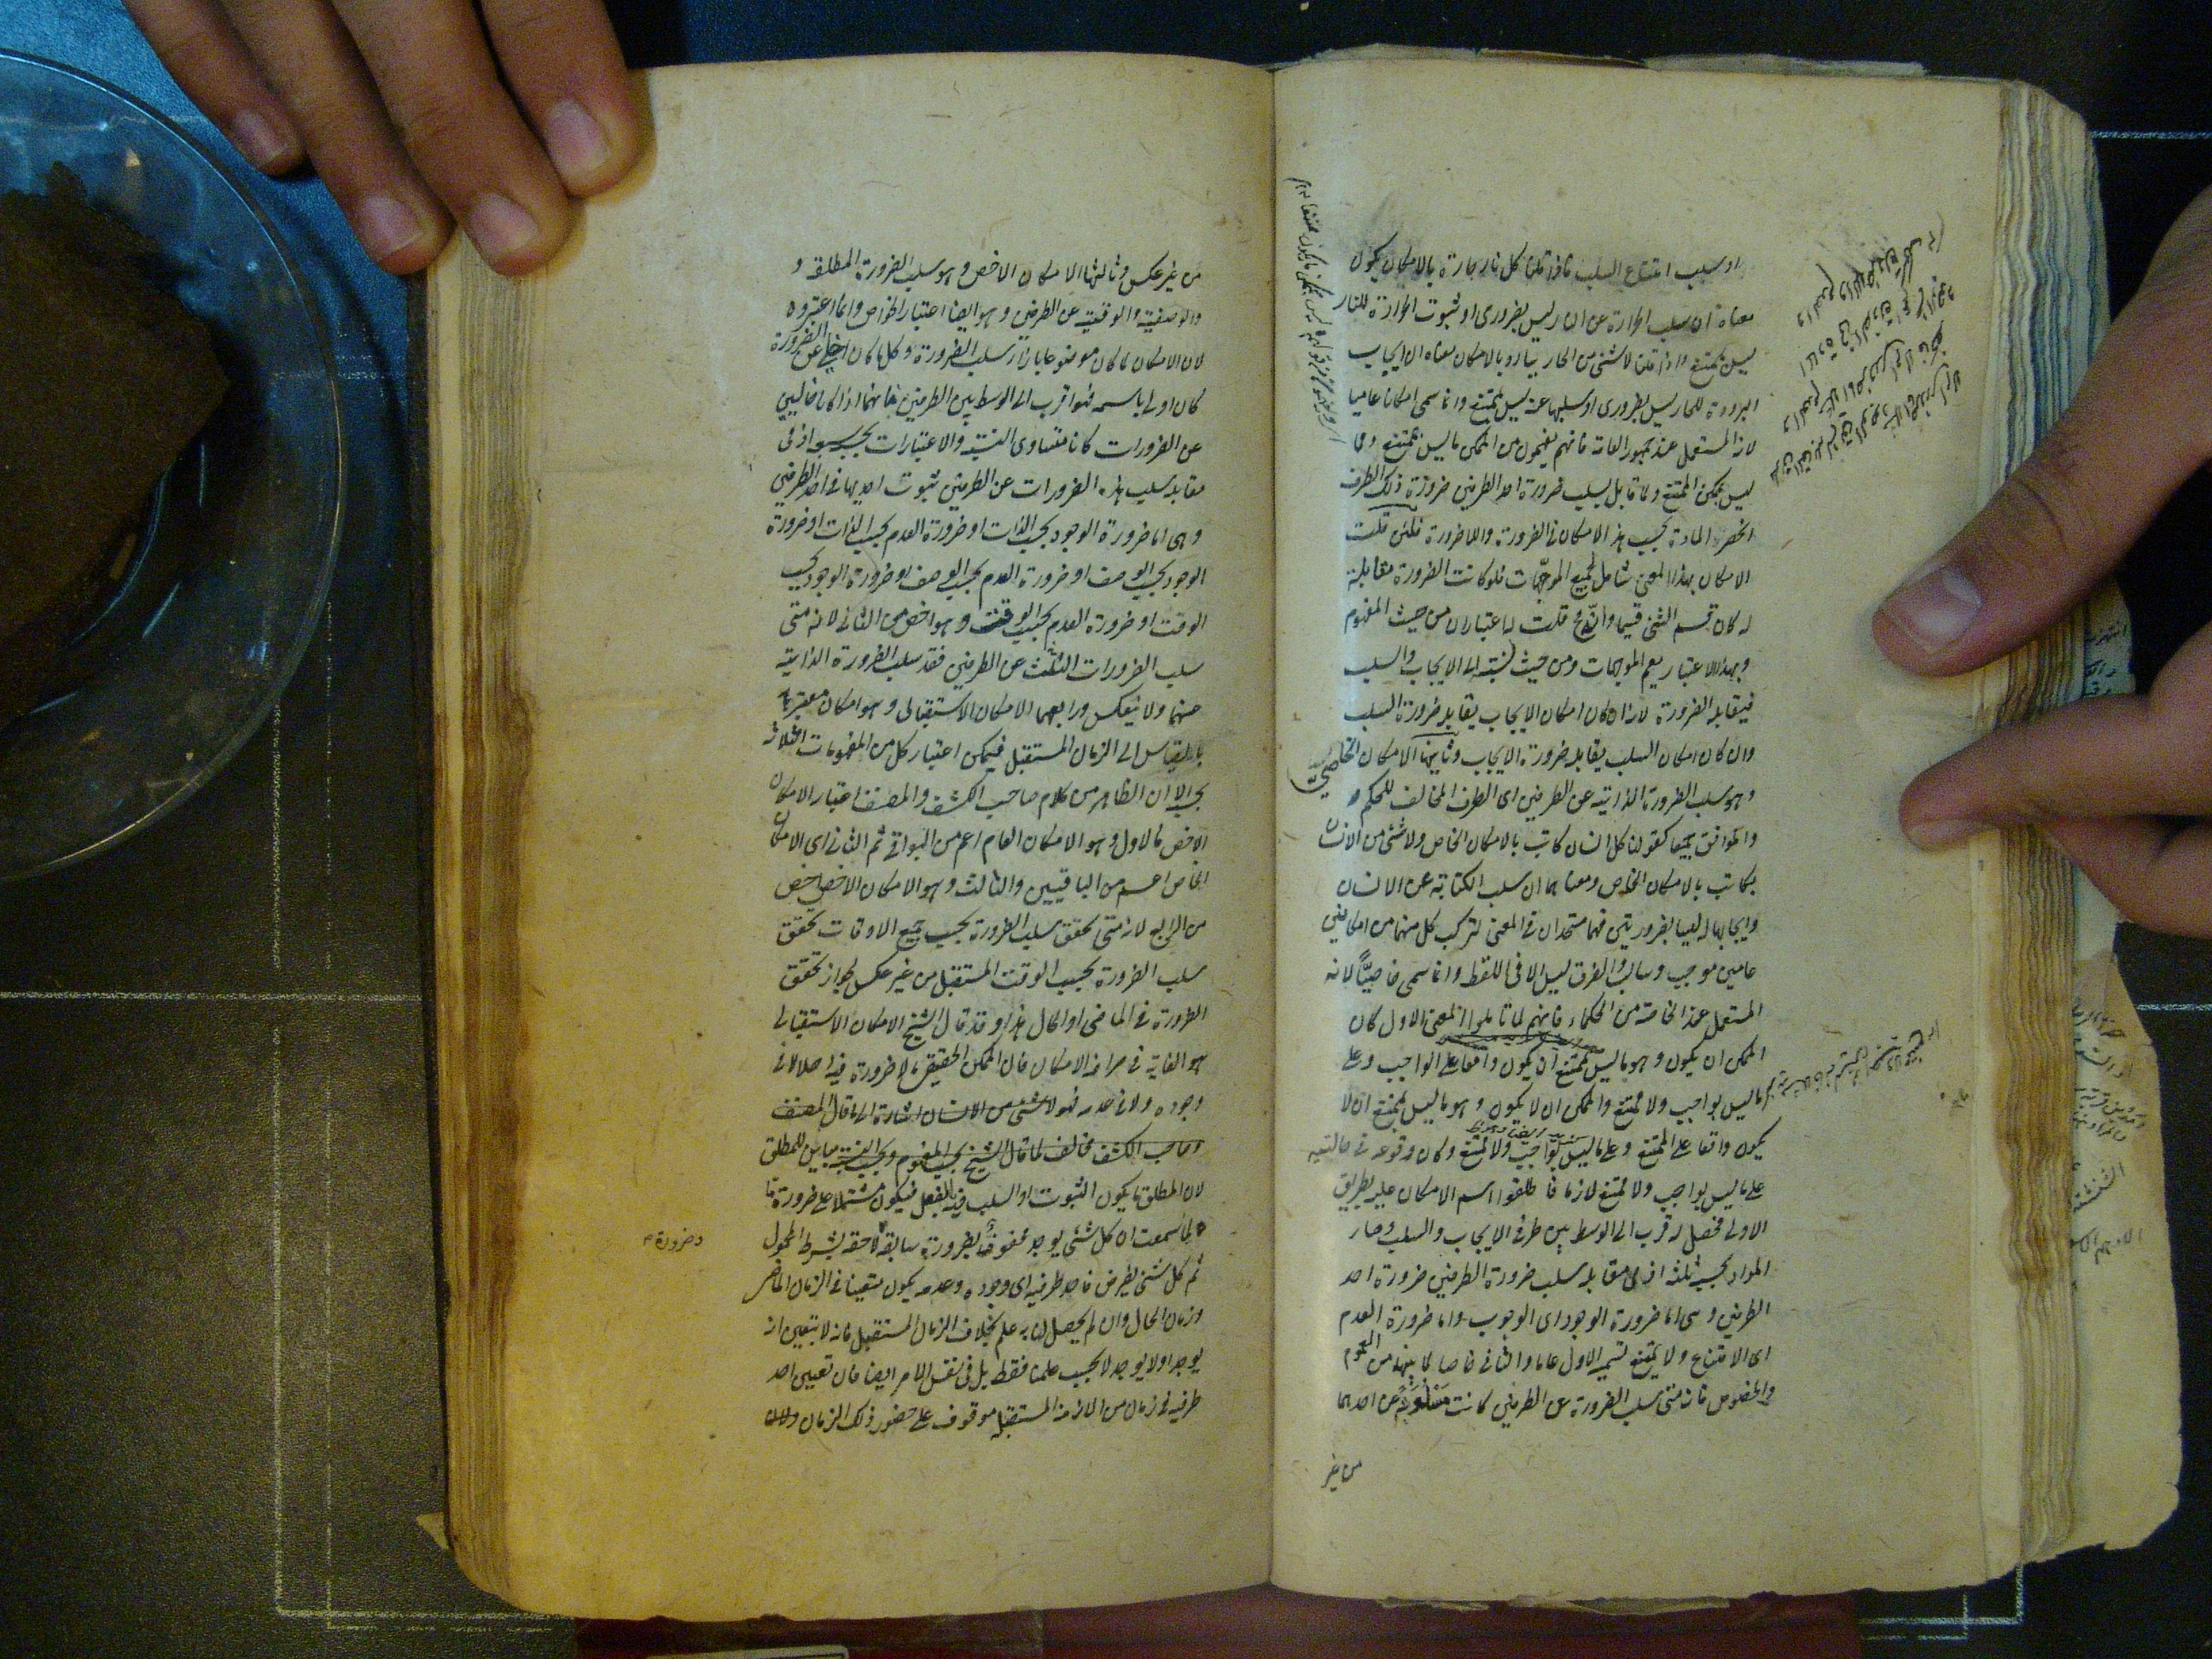 او سلب امتناع السلب فاذا قلنا كل نار حارة بالامكان يكون
معناه ان سلب الحرارة عن النار ليس بضرورى او ثبوت الحرارة للنار
ليس بممتنع واذا قلنا لا شئ من الحار ببارد بالامكان معناه ان ايجاب
البرودة للحار ليس بضرورى او سلبها عنه ليس بممتنع وانما سمى امكانا عاميا
لانه المستعمل عند جمهور العامة فانهم يفهمون من الممكن ما ليس بممتنع ومما
ليس بممكن الممتنع ولما قابل سلب ضرورة احد الطرفين ضرورة ذلك الطرف
انحصر المادة بحسب هذا الامكان فى الضرورة واللاضرورة فلئن قلت
الامكان بهذا المعنى شامل لجميع الموجهات فلو كانت الضرورة مقابلة
له كان قسم الشئ قسيما وانه مح قلت له اعتباران من حيث المفهوم
وبهذا الاعتبار يعم الموجهات ومن حيث نسبته الى الايجاب والسلب
فيقابله الضرورة لانه ان كان امكان الايجاب يقابله ضرورة السلب
وان كان امكان السلب يقابله ضرورة الايجاب وثانيها الامكان الخاص
وهو سلب الضرورة الذاتية عن الطرفين اى الطرف المخالف للحكم
والموافق جميعا كقولنا كل انسان كاتب بالامكان الخاص ولا شئ من الانسان
بكاتب بالامكان الخاص ومعناهما ان سلب الكتابة عن الانسان
وايجابها له ليسا بضروريتين فهما متحدان فى المعنى لتركب كل منهما من امكانين
عامين موجب وسالب والفرق ليس الا فى اللفظ وانما سمى خاصيا لانه
المستعمل عند الخاصة من الحكماء فانهم لما تاملوا المعنى الاول كان
الممكن ان يكون وهو ما ليس بممتنع ان يكون واقعا على الواجب وعلى
ما ليس بواجب ولا ممتنع والممكن ان لا يكون وهو ما ليس بممتنع ان لا
يكون واقعا على الممتنع وعلى ما ليس بواجب ولا ممتنع وكان وقوعه فى حالتيه
على ما ليس بواجب ولا ممتنع لازما فاطلقوا اسم الامكان عليه بطريق
الاولى فحصل له قرب الى الوسط بين طرفى الايجاب والسلب وصار
المواد بحسبه ثلثة اذ فى مقابلة سلب ضرورة الطرفين ضرورة احد
الطرفين وهى اما ضرورة الوجود اى الوجوب واما ضرورة العدم
اى الامتناع ولا يمتنع تسمية الاول عاما والثانى خاصا لما بينهما من العموم
والخصوص فانه متى سلب الضرورة عن الطرفين كانت مسلوبة عن احدهما
من غير
من غير عكس وثالثها الامكان الاخص وهو سلب الضرورة المطلقة و
والوصفية والوقتية عن الطرفين وهو ايضا اعتبار الخواص وانما اعتبروه
لان الامكان لما كان موضوعا بازاء سلب الضرورة وكلما كان اخلى عن الضرورة
كان اولى باسمه فهو اقرب الى الوسط بين الطرفين فانهما اذا كانا خاليين
عن الضرورات كانا متساوى النسبة والاعتبارات بحسبه اذ فى
مقابلة سلب هذه الضرورات عن الطرفين ثبوت احديها فى احد الطرفين
وهى اما ضرورة الوجود بحسب الذات او ضرورة العدم بحسب الذات او ضرورة
الوجود بحسب الوصف او ضرورة العدم بحسب الوصف او ضرورة الوجود بحسب
الوقت او ضرورة العدم بحسب الوقت وهو اخص من الثانى لانه متى
سلب الضرورات الثلث عن الطرفين فقد سلب الضرورة الذاتية
عنهما ولا ينعكس ورابعها الامكان الاستقبالى وهو امكان معتبر
بالقياس الى الزمان المستقبل فيمكن اعتبار كل من المفهومات الثلاث
بحسبه الا ان الظاهر من كلام صاحب الكشف والمصنف اعتبار الامكان
الاخص فالاول وهو الامكان العام اعم من البواقى ثم الثانى اى الامكان
الخاص اعم من الباقيين والثالث وهو الامكان الاخص اخص
من الرابع لانه متى تحقق سلب الضرورة بحسب جميع الاوقات تحقق
سلب الضرورة بحسب الوقت المستقبل من غير عكس لجواز تحقق
الضرورة فى الماضى او الحال هذا وقد قال الشيخ الامكان الاستقبالى
هو الغاية فى صرافة الامكان فان الممكن الحقيقى ما لا ضرورة فيه اصلا لا فى
وجوده ولا فى عدمه فهو لا شئ من الانسان اشارة الى ما قال المصنف
وصاحب الكشف مخالف لما قال الشيخ بحسب المفهوم وبحسب النسبة مباين للمطلق
لان المطلق ما يكون الثبوت او السلب فيه بالفعل فيكون مشتملا على ضرورة ما
لما سمعت ان كل شئ يوجد محفوف بضرورة سابقة لاحقة بشرط المحمول
وضرورة
ثم كل شئ يفرض فاحد طرفيه اى وجوده وعدمه يكون متعينا فى الزمان الماضى
وزمان الحال وان لم يحصل لنا به علم بخلاف الزمان المستقبل فانه لا يتعين انه
يوجد او لا يوجد لا بحسب علمنا فقط بل فى نفس الامر ايضا فان تعيين احد
طرفيه فى زمان من الازمنة المستقبلة موقوف على حضور ذلك الزمان ولان